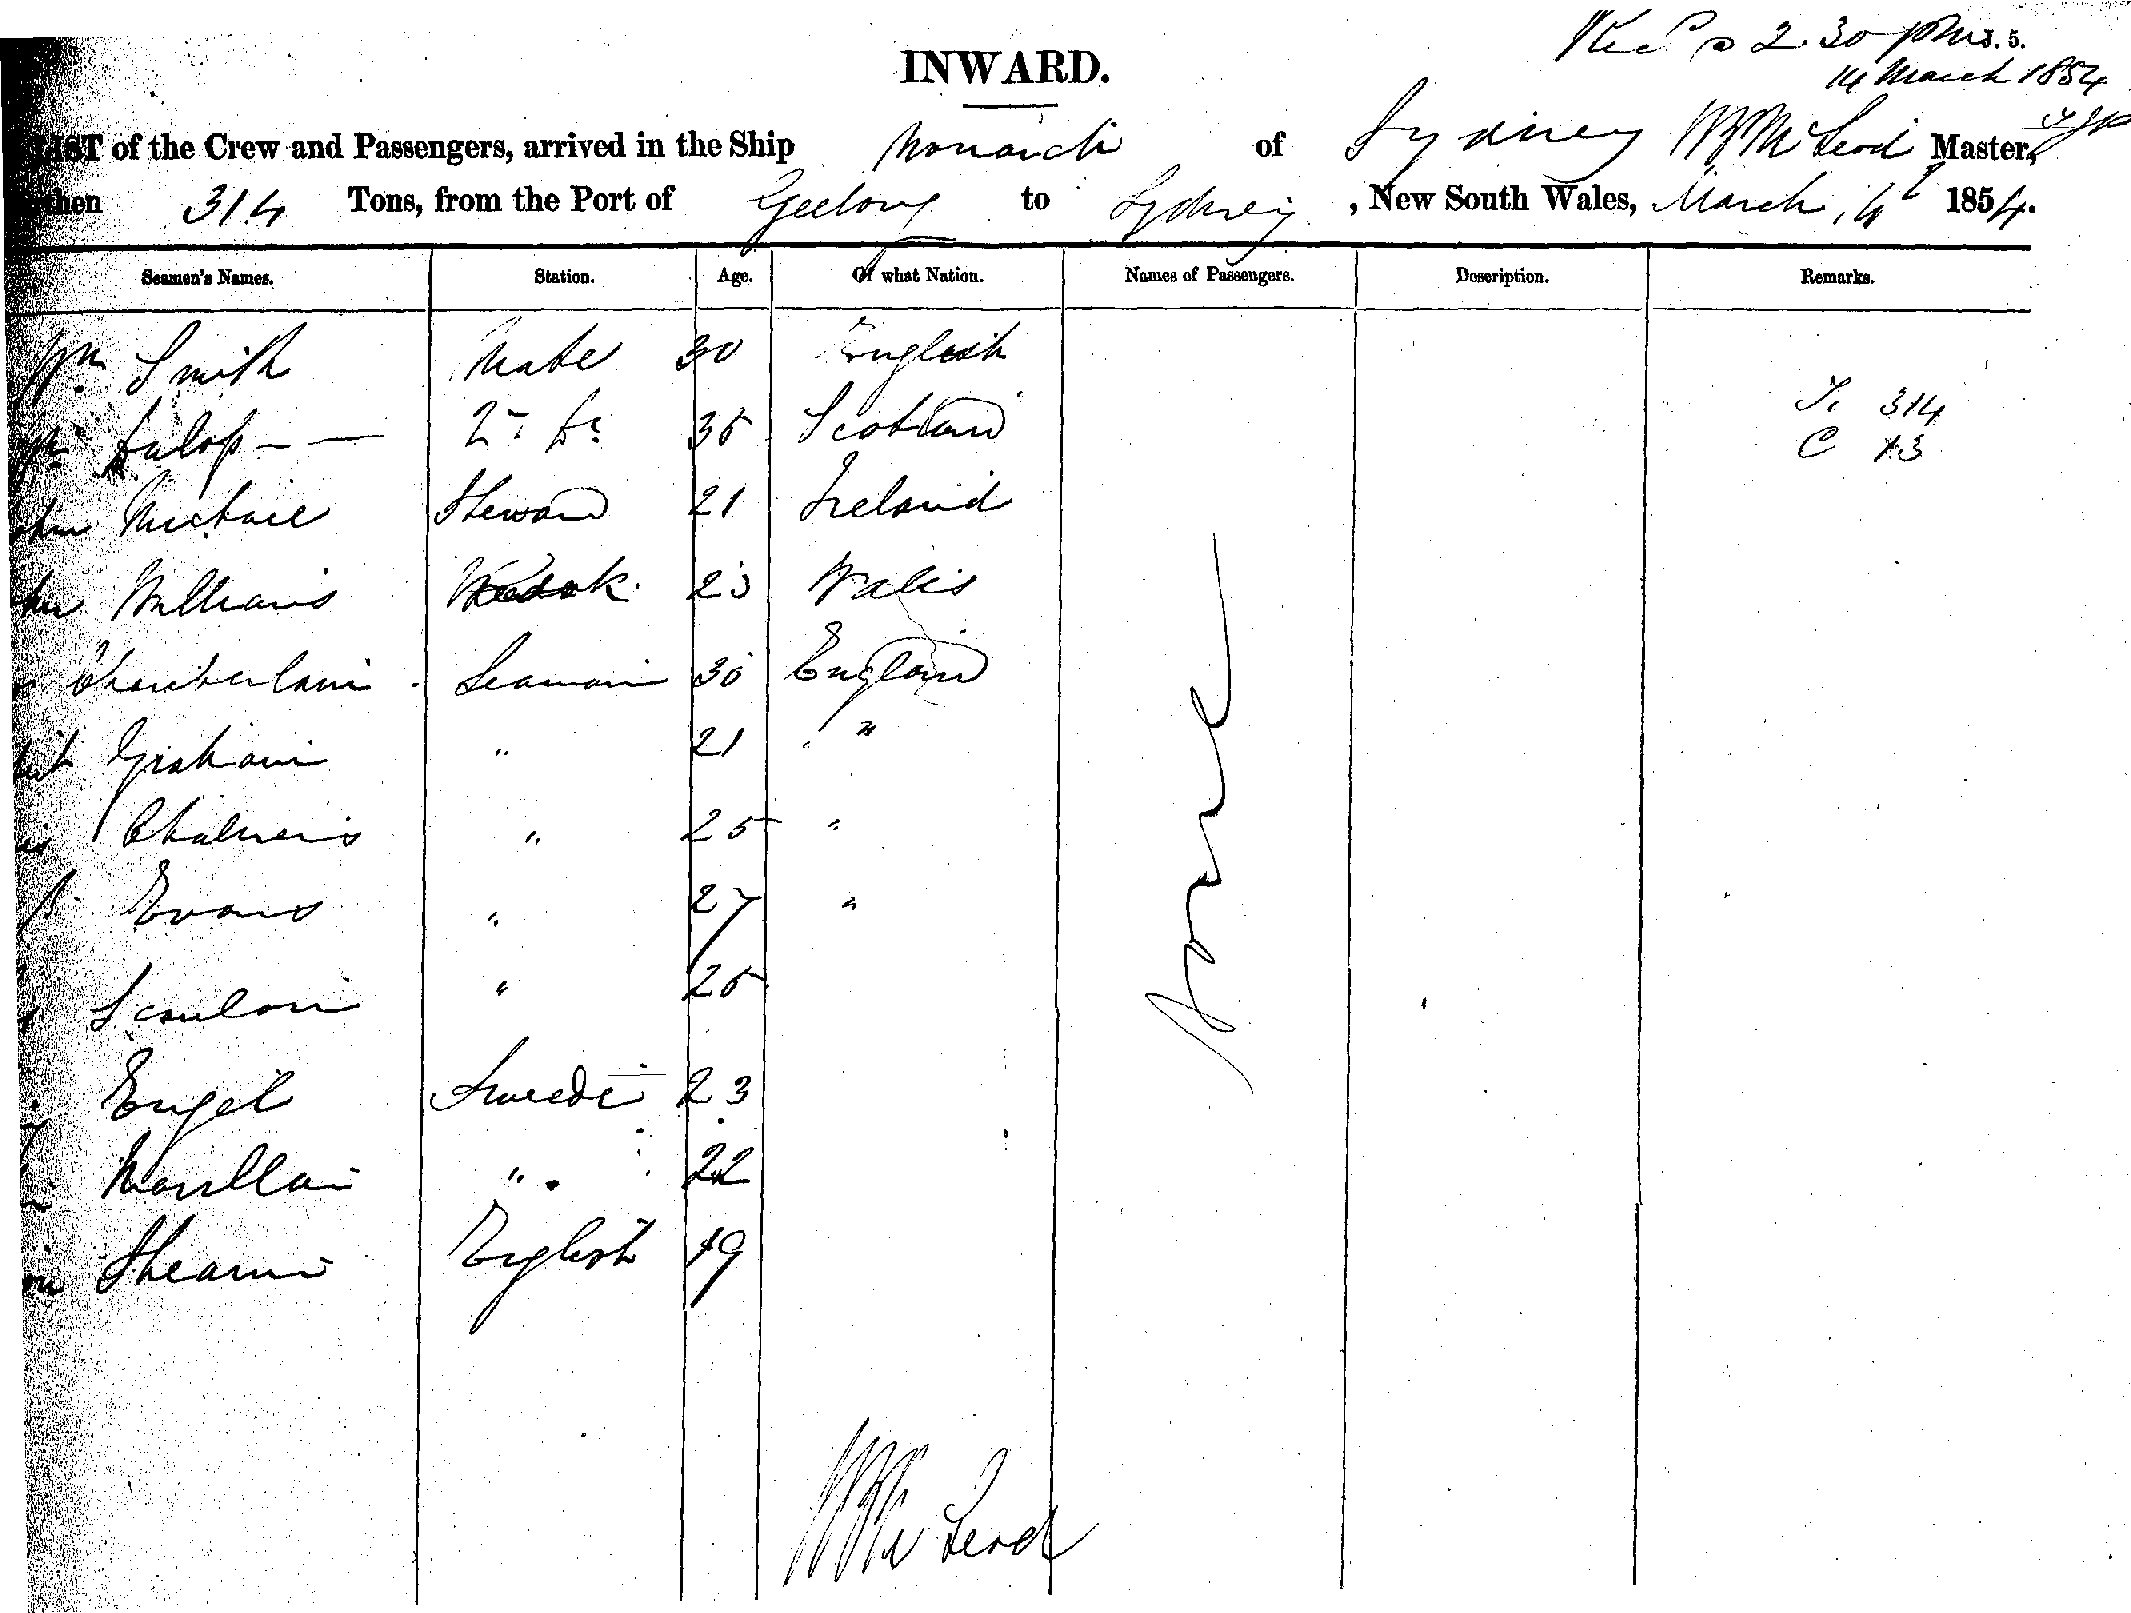 INWARD.
2.30 pm 3.5.
14 March 1854
LIST of the Crew and Passengers, arrived in the Ship Monarch of Sydney W McLeod Master,
then 314 Tons, from the Port of Geelong to Sydney, New South Wales, March 14 1854.
Seamen's Names. Station. Age. Of what Nation. Names of Passengers. Description. Remarks.
Wm Smith Mate 30 English
T. 314
Dulop 2nd Do 35 Scotland
C 13
Michael Steward 21 Ireland
Williams 23 Wales
Chamberlain Seaman 30 England
Graham " 21 "
Chalmers " 25 "
Evans " 27 "
Scanlon " 25
Engel Swede 23
" 22
English 19
None
W McLeod